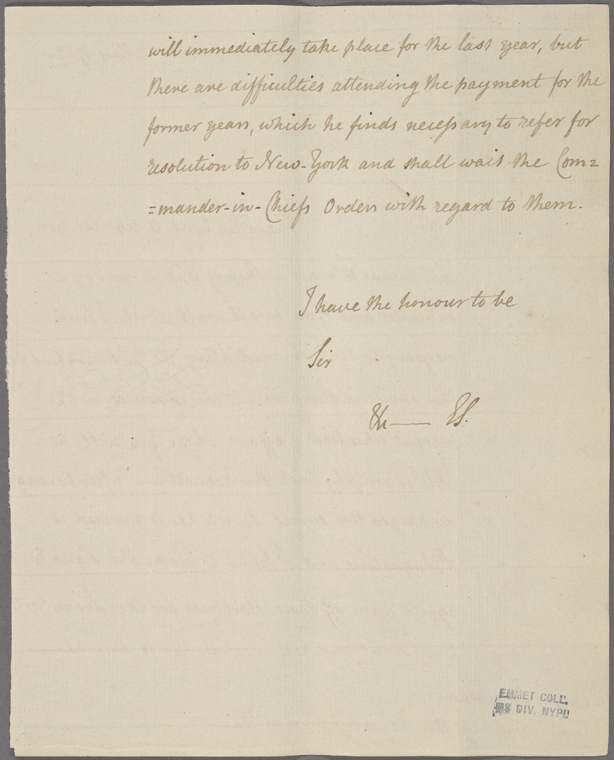 will immediately take place for the last year, but
there are difficulties attending the payment for the
former years, which he finds necessary to refer for
resolution to New-York and shall wait the Com=
=mander-in-Chiefs Orders with regard to them.
I have the honour to be
Sir
&c—— ES.
EMMET COLL.
MS DIV. NYPL